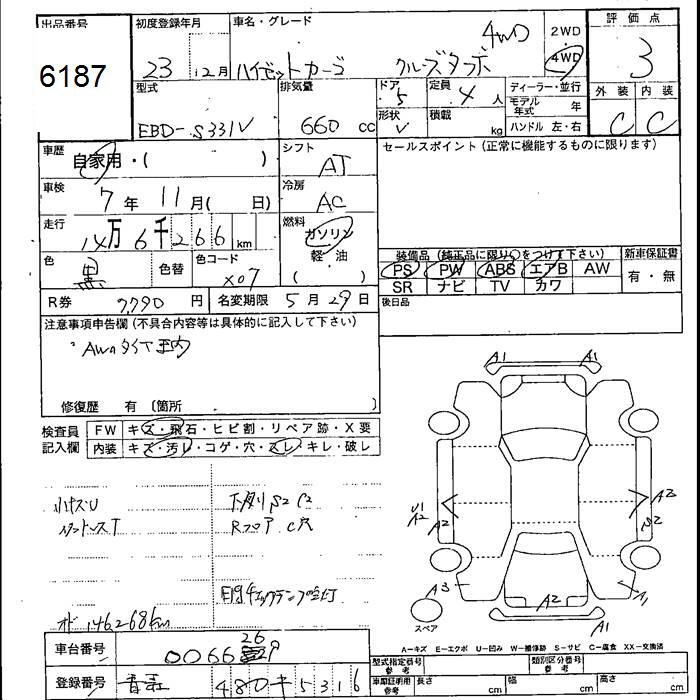 出品番号 初度登録年月 車名・グレード 評価点
6187 23 12月 ハイゼットカーゴ クルーズターボ 4WD 2WD 4WD 3
型式 排気量 ドア 5 定員 4 人 ディーラー・並行 外装 内装
EBD-S331V 660 cc 形状 V 積載 kg モデル年式 年 C C
ハンドル 左・右
車歴 自家用・( ) シフト AT セールスポイント(正常に機能するものに限ります)
車検 7年 11月( 日) 冷房 AC
走行 14万6千266 km 燃料 ガソリン
色 黒 色替 色コード X07 軽油 ( )
装備品(純正品に限り○をつけて下さい) 新車保証書
PS PW ABS エアB AW 有・無
SR ナビ TV カワ
R券 7,790 円 名変期限 5月29日 後日品
注意事項申告欄(不具合内容等は具体的に記入して下さい)
修復歴 有〔箇所 〕
検査員 FW キズ・飛石・ヒビ割・リペア跡・X要
記入欄 内装 キズ・汚レ・コゲ・穴・スレ・キレ・破レ
A1 A1
U1 A2 A2 A3 B2
小キズU 下廻りS2C2
Rフロア C穴
A3 A2 A1
スペア A1
146,268km
A-キズ E-エクボ U-凹み W-補修跡 S-サビ C-腐食 XX-交換済
車台番号 0066 26
登録番号 480 キ 5316
型式指定番号 参考 類別区分番号 参考
車庫証明用 参考 長さ cm 幅 cm 高さ cm